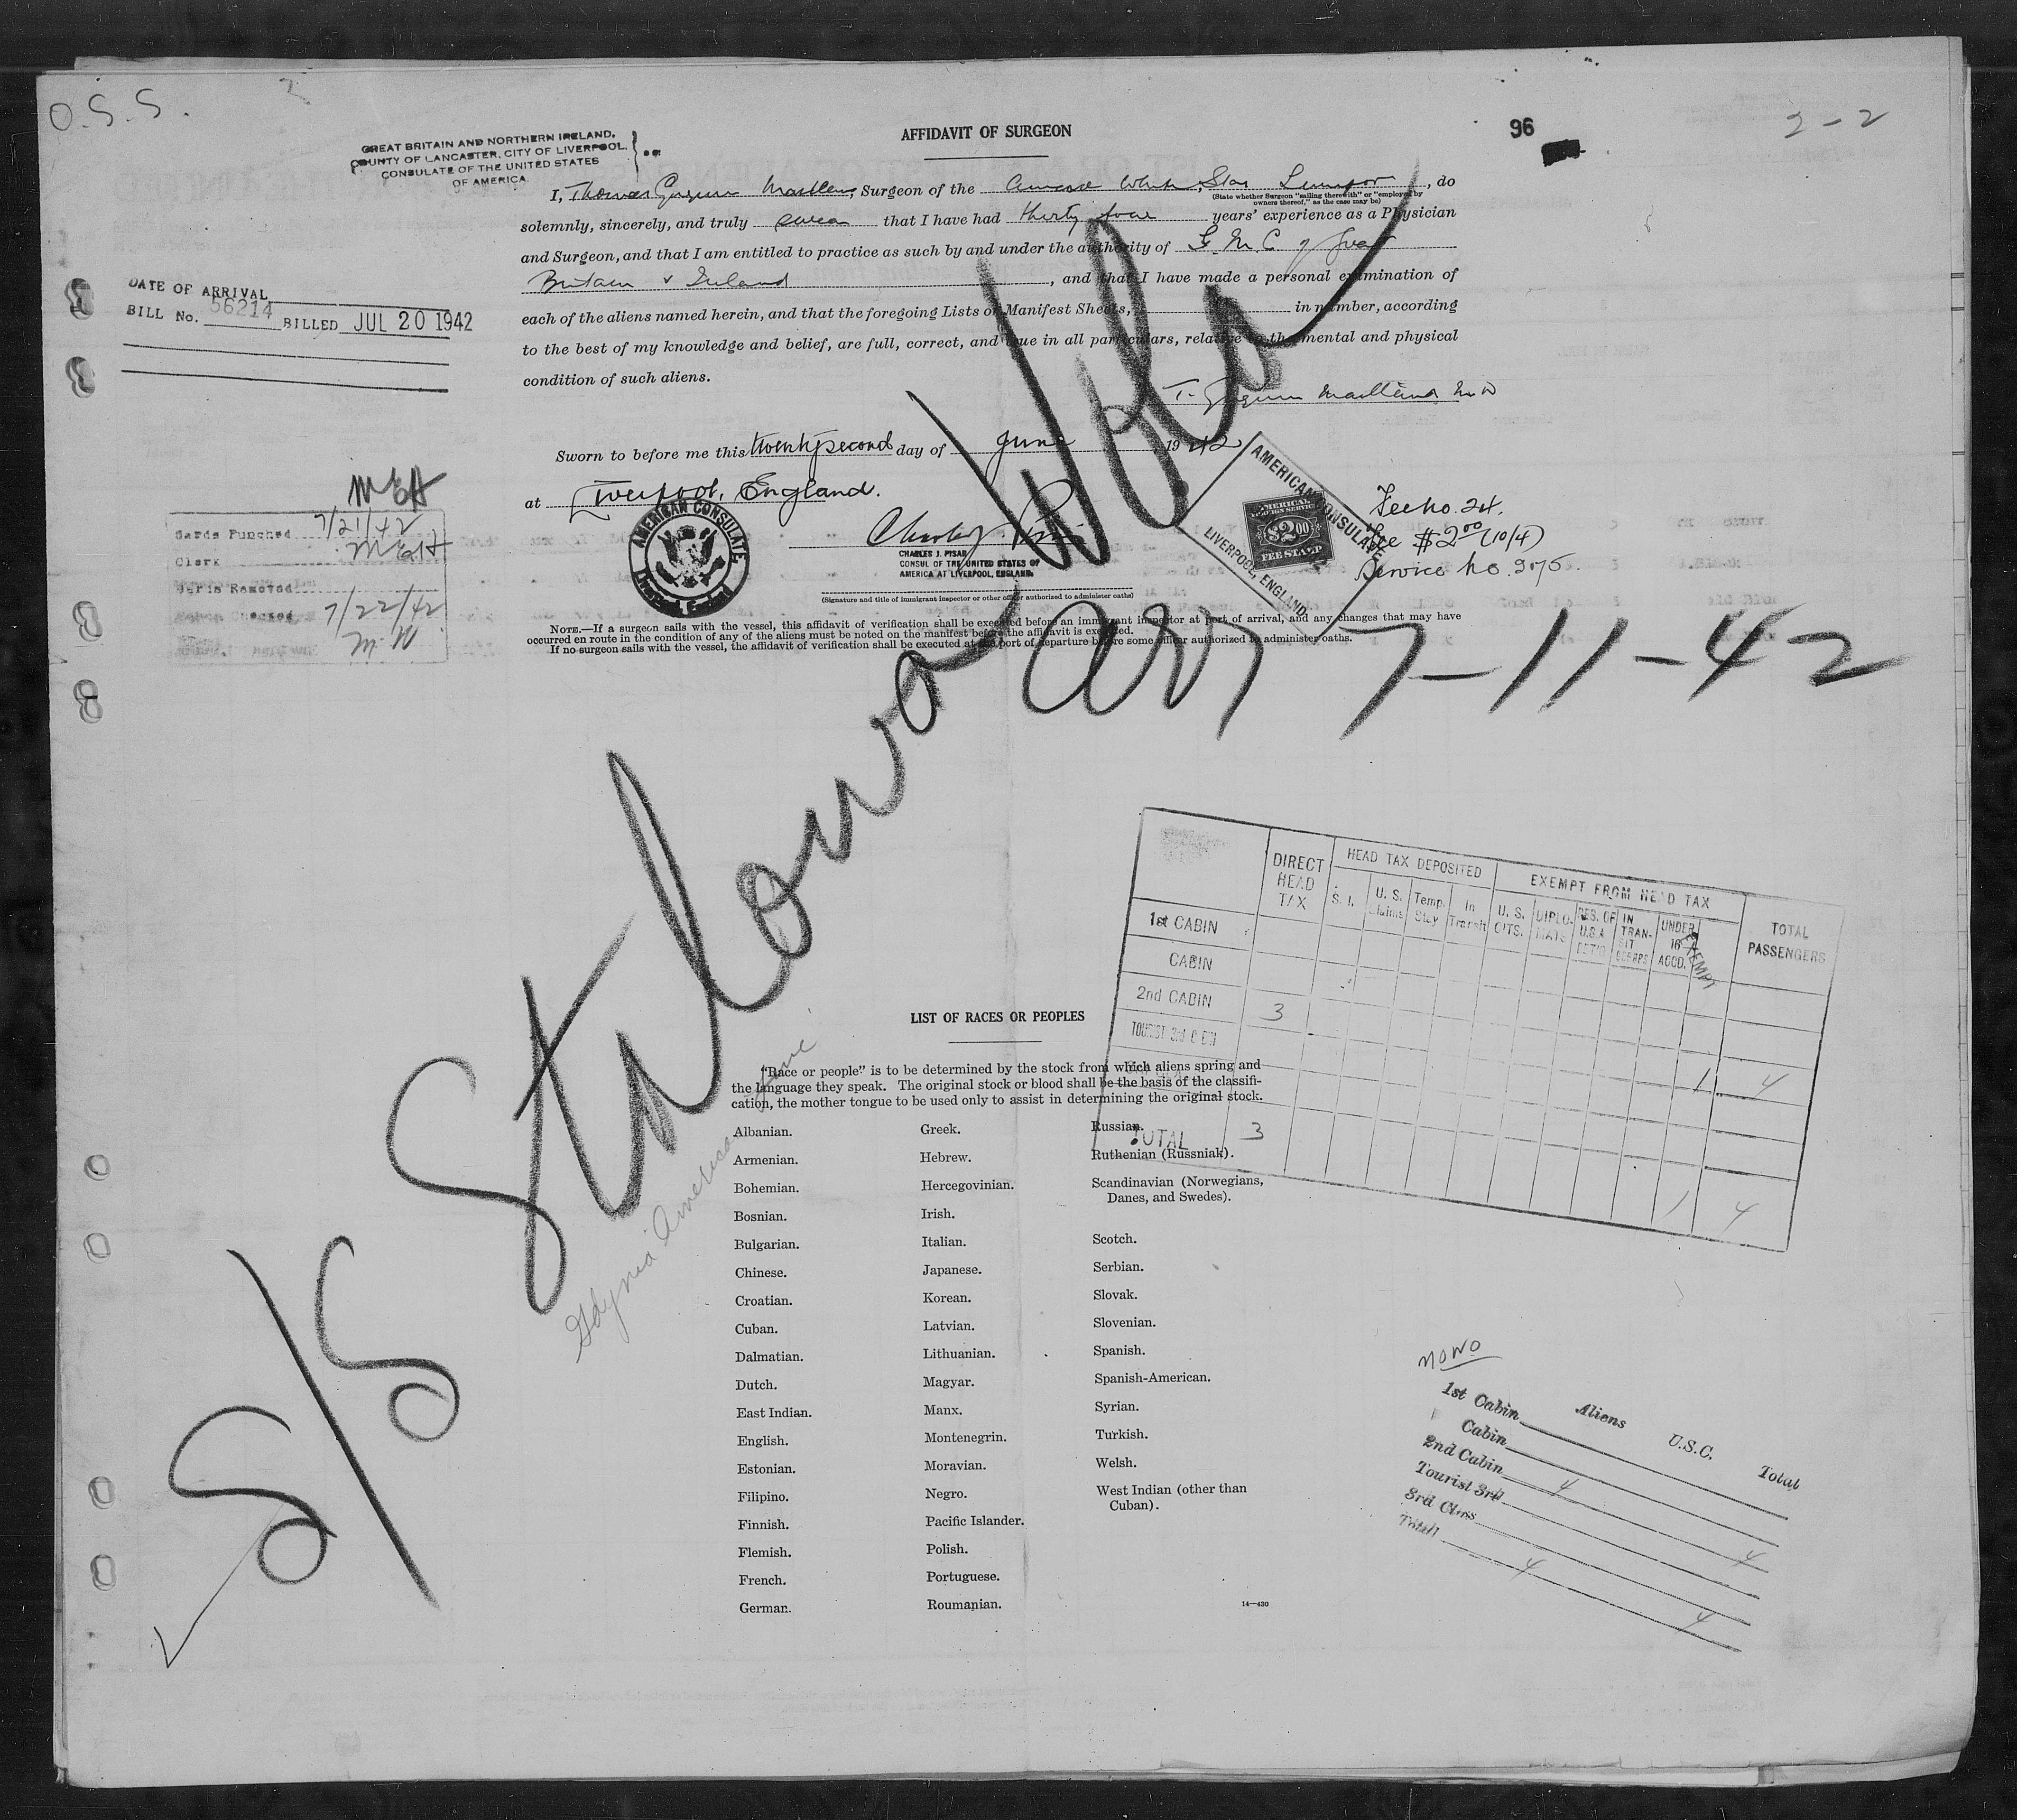 O.S.S.
96
2-2
GREAT BRITAIN AND NORTHERN IRELAND,
COUNTY OF LANCASTER, CITY OF LIVERPOOL.
CONSULATE OF THE UNITED STATES
OF AMERICA.
AFFIDAVIT OF SURGEON
I, Thomas Maitland, Surgeon of the Cunard White Star, do
(State whether Surgeon "sailing therewith" or "employed by
owners thereof," as the case may be)
solemnly, sincerely, and truly swear that I have had thirty four years' experience as a Physician
and Surgeon, and that I am entitled to practice as such by and under the authority of G. M. C. of Great
Britain & Ireland, and that I have made a personal examination of
each of the aliens named herein, and that the foregoing Lists or Manifest Sheets, in number, according
to the best of my knowledge and belief, are full, correct, and true in all particulars, relative to the mental and physical
condition of such aliens.
T. Maitland M.D
DATE OF ARRIVAL
BILL No. 56214 BILLED JUL 20 1942
Sworn to before me this twenty second day of June, 1942
at Liverpool, England.
AMERICAN CONSULATE
CHARLES J. PISAR
CONSUL OF THE UNITED STATES OF
AMERICA AT LIVERPOOL, ENGLAND.
(Signature and title of immigrant inspector or other officer authorized to administer oaths)
AMERICAN CONSULATE
LIVERPOOL, ENGLAND.
AMERICAN
FOREIGN SERVICE
$2.00
FEE STAMP
Fee no. 24.
Fee $2.00 (10/4)
Service no. 3075.
MEH
Cards Punched 7/21/42
Clerk MEH
7/22/42
M.W
NOTE.—If a surgeon sails with the vessel, this affidavit of verification shall be executed before an immigrant inspector at port of arrival, and any changes that may have
occurred en route in the condition of any of the aliens must be noted on the manifest before the affidavit is executed.
If no surgeon sails with the vessel, the affidavit of verification shall be executed at the port of departure before some officer authorized to administer oaths.
S/S Stalowa Wola
arr 7-11-42
Gdynia American Line
DIRECT HEAD TAX
HEAD TAX DEPOSITED
EXEMPT FROM HEAD TAX
TOTAL PASSENGERS
S. I.
U. S. Claims
Temp. Stay
In Transit
U. S. CITS.
DIPLO-MATS
RES. OF U.S.A.
IN TRAN-SIT
UNDER 16 ACCD.
EXEMPT
1st CABIN
CABIN
2nd CABIN 3
TOURIST 3rd
1 4
TOTAL 3
1 4
LIST OF RACES OR PEOPLES
"Race or people" is to be determined by the stock from which aliens spring and
the language they speak. The original stock or blood shall be the basis of the classifi-
cation, the mother tongue to be used only to assist in determining the original stock.
Albanian.
Armenian.
Bohemian.
Bosnian.
Bulgarian.
Chinese.
Croatian.
Cuban.
Dalmatian.
Dutch.
East Indian.
English.
Estonian.
Filipino.
Finnish.
Flemish.
French.
German.
Greek.
Hebrew.
Hercegovinian.
Irish.
Italian.
Japanese.
Korean.
Latvian.
Lithuanian.
Magyar.
Manx.
Montenegrin.
Moravian.
Negro.
Pacific Islander.
Polish.
Portuguese.
Roumanian.
Russian.
Ruthenian (Russniak).
Scandinavian (Norwegians,
Danes, and Swedes).
Scotch.
Serbian.
Slovak.
Slovenian.
Spanish.
Spanish-American.
Syrian.
Turkish.
Welsh.
West Indian (other than
Cuban).
14—430
Aliens U.S.C. Total
1st Cabin
Cabin
2nd Cabin 4 4
Tourist 3rd
3rd Class
Total 4 4